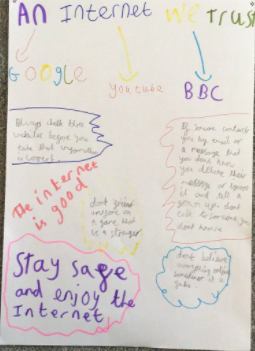 AN INTERNET We Trust
GOOGLE
Youtube
BBC
Always check the
website before you
take that information
is correct
If someone contacts
you by email or
a message that
you dont know
you delete their
message or ignore
it and tell a
grown up. dont
talk to someone you
dont know
The internet
is good
dont
anyone on
a game that
is a stranger
Stay safe
and enjoy the
Internet
dont believe
everything online
sometimes it is
fake